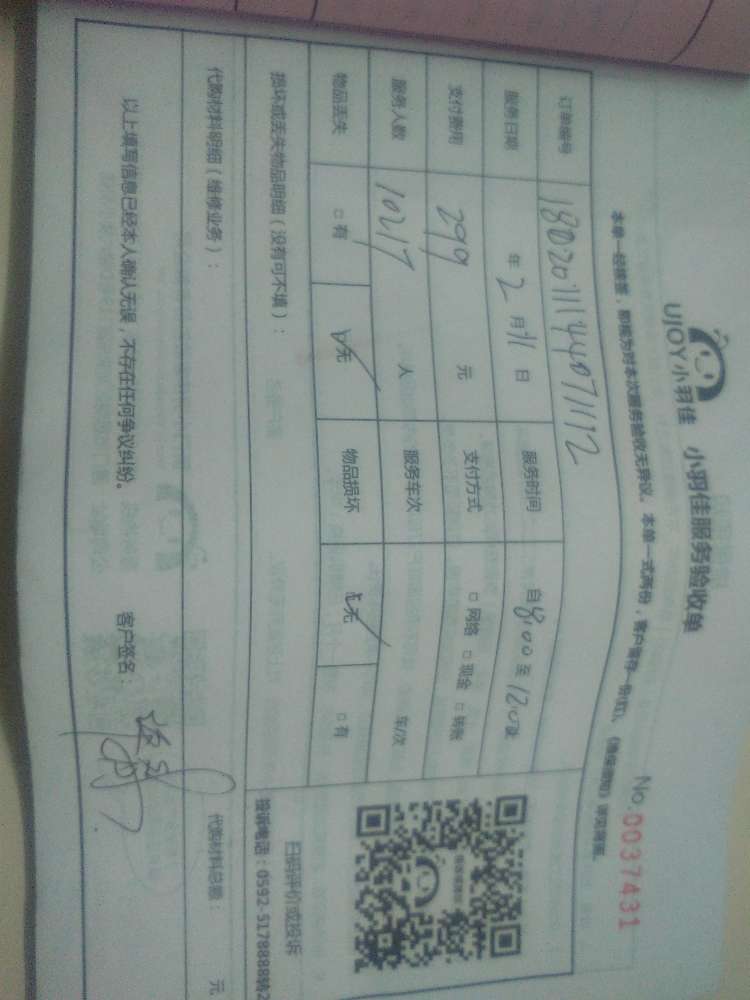 UJOY小羽佳 小羽佳服务验收单
No.0037431
本单一经签署,即视为对本次服务验收无异议。本单一式两份,客户留存一份(红)。
订单编号
服务日期 年 2 月 11 日 服务时间 自 8:00 至 12:00
支付费用 299 元 支付方式 □网络 □现金 □转账
服务人数 10217 人 服务车次 车/次
物品丢失 □有 □无 物品损坏 □无 □有
损坏或丢失物品明细(没有可不填):
扫码评价或投诉
投诉电话:0592-5178888转2
代购材料明细(维修业务):
代购材料总额: 元
以上填写信息已经本人确认无误,不存在任何争议纠纷。 客户签名: